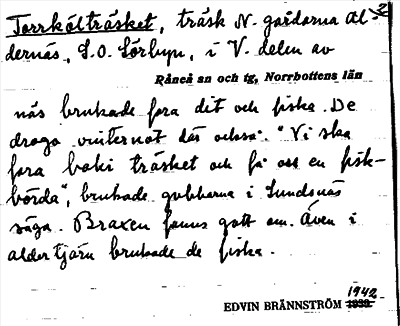 Torrkölträsket, träsk N. gårdarna Al-
dernäs, S.O. Sörbyn, i V. delen av
Råneå sn och tg, Norrbottens län
näs brukade fara dit och fiska. De
drogo vinternot där också. "Vi ska
fara baki träsket och få oss en fisk-
börda", brukade gubbarna i Sundsnäs
säga. Braxen fanns gott om. Även i
aldertjärn brukade de fiska.
1942
EDVIN BRÄNNSTRÖM 1939